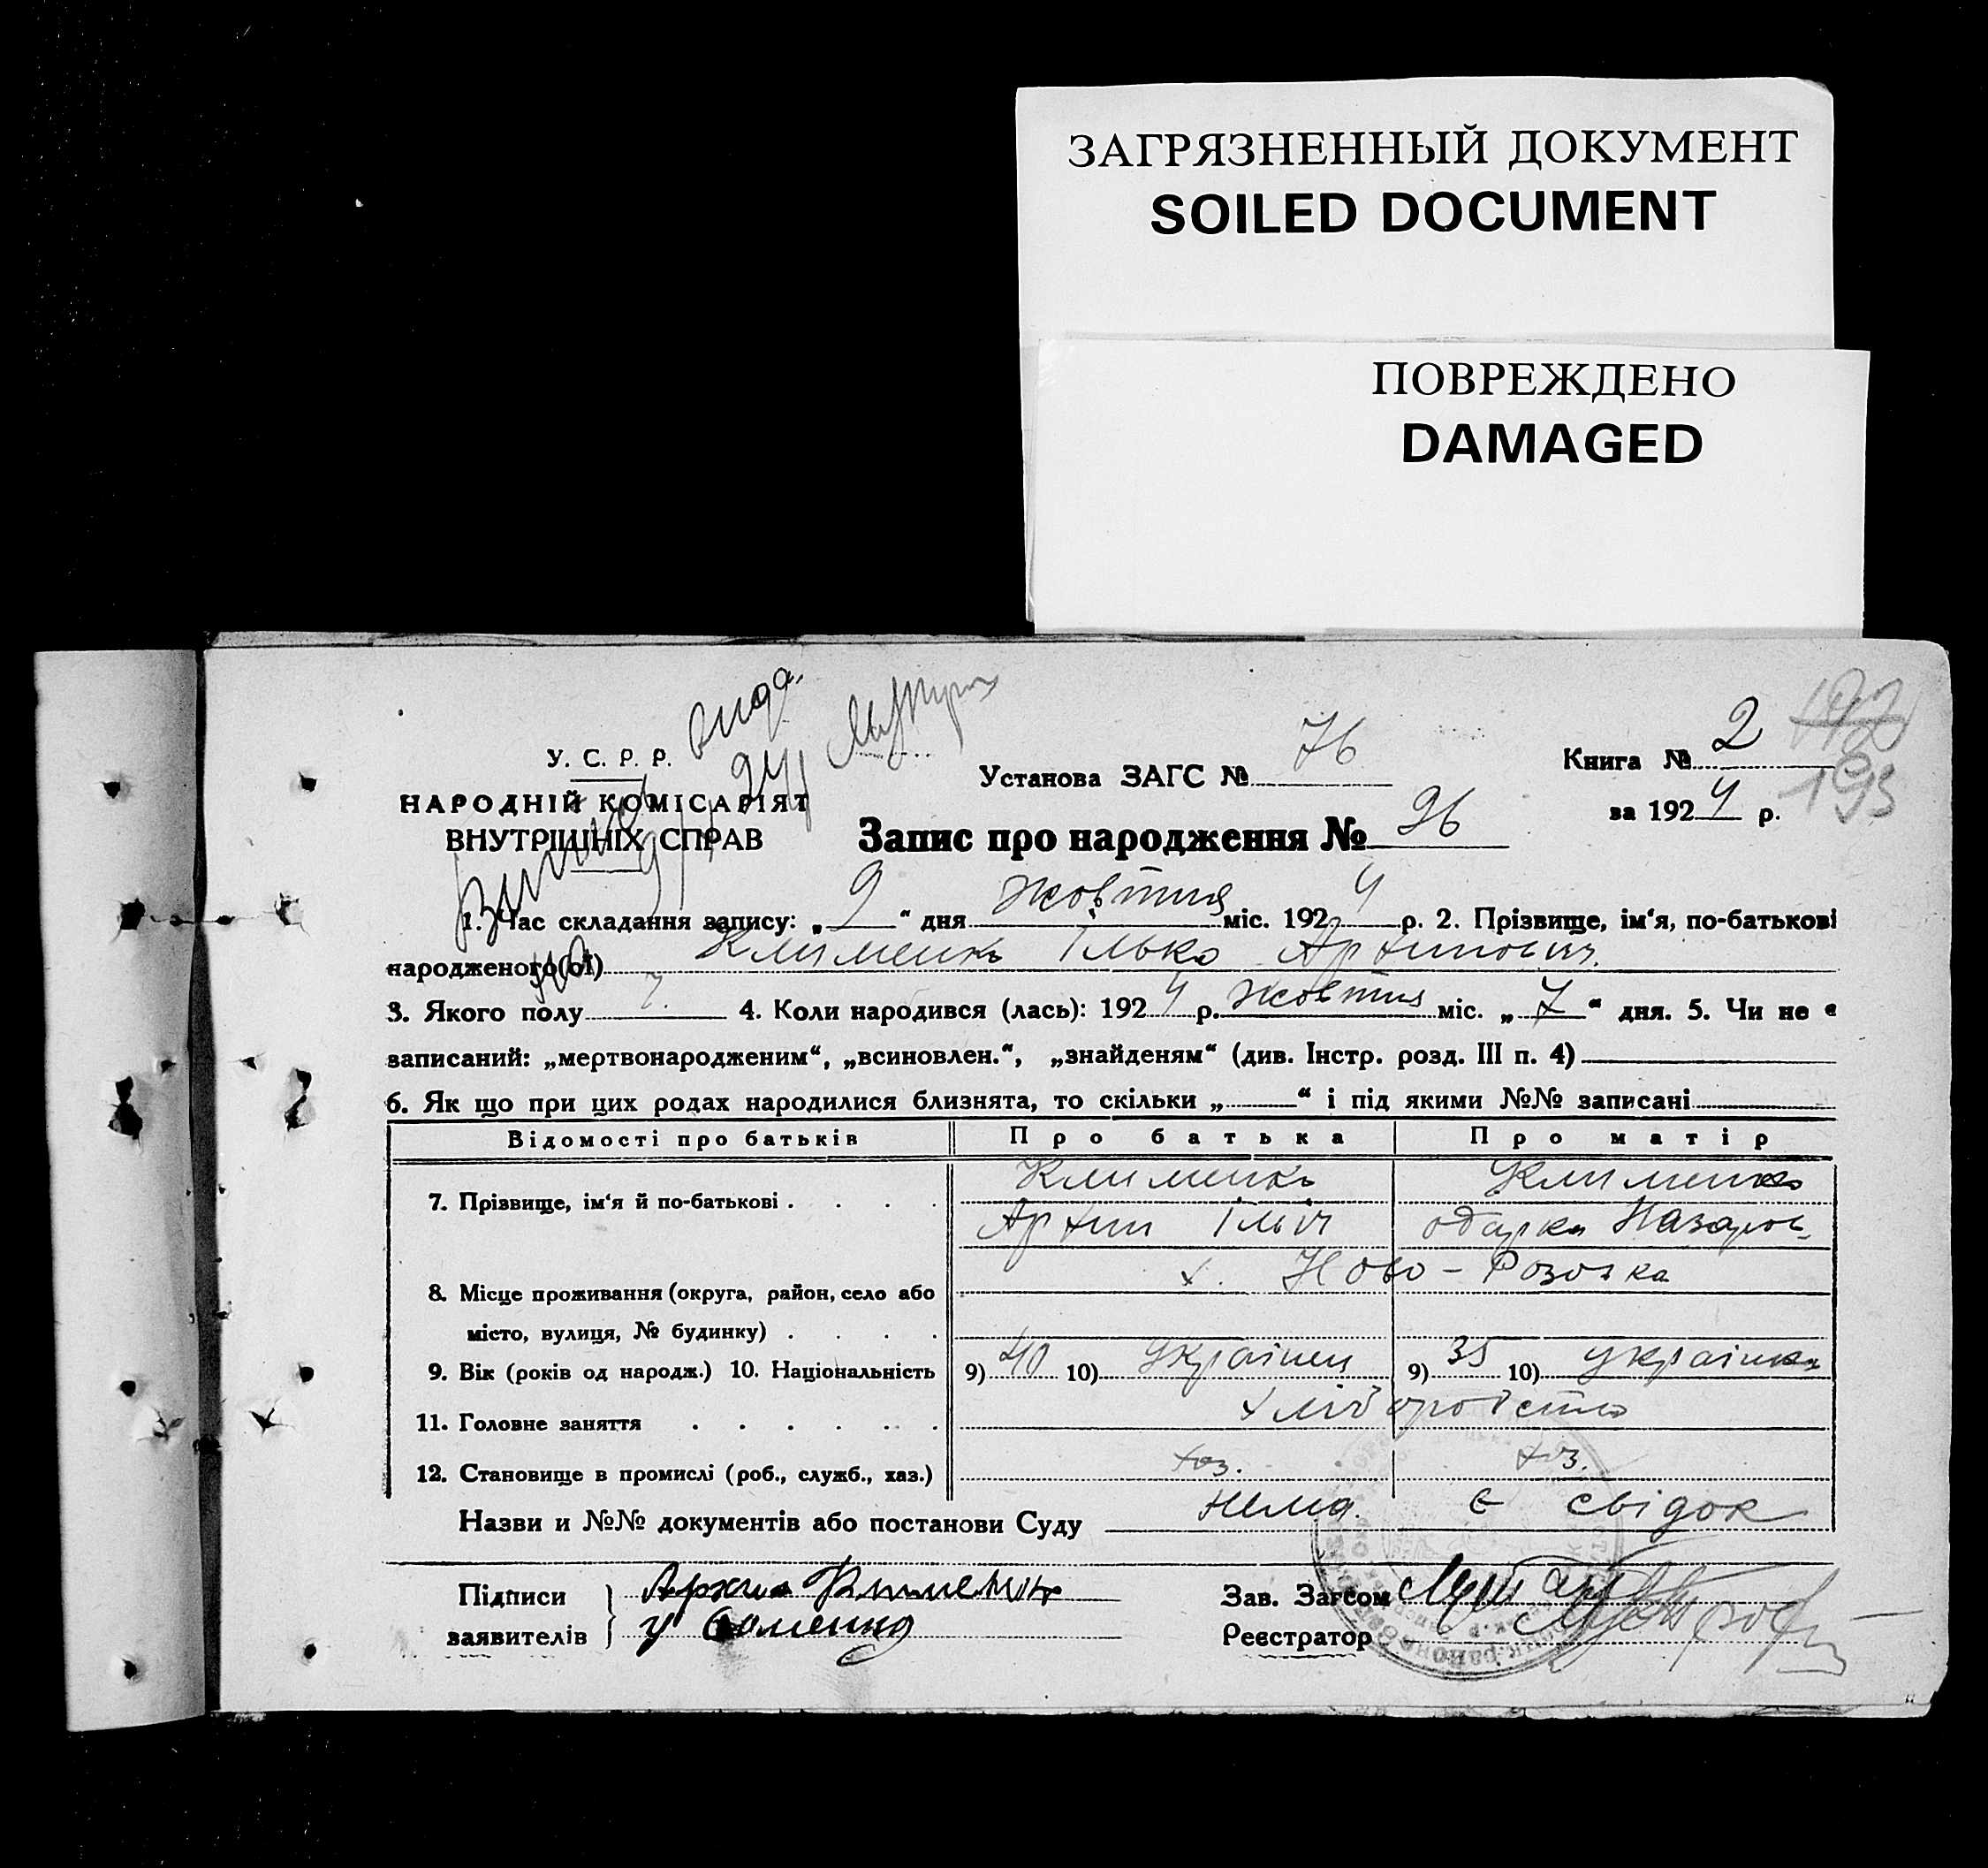 ЗАГРЯЗНЕННЫЙ ДОКУМЕНТ
SOILED DOCUMENT
ПОВРЕЖДЕНО
DAMAGED
У. С. Р. Р.
НАРОДНІЙ КОМІСАРІЯТ
ВНУТРІШНІХ СПРАВ
Установа ЗАГС № 76
Книга № 2
за 1924 р.
193
Запис про народження № 96
1. Час складання запису: „9“ дня жовтня міс. 1924 р. 2. Прізвище, ім‘я, по-батькові
народженого(ої) Клименко Ілько Архипович
3. Якого полу ч. 4. Коли народився (лась): 1924 р. жовтня міс. „7“ дня. 5. Чи не є
записаний: „мертвонародженим“, „всиновлен.“, „знайденям“ (див. Інстр. розд. III п. 4)
6. Як що при цих родах народилися близнята, то скільки „ “ і під якими №№ записані
Відомості про батьків Про батька Про матір
7. Прізвище, ім‘я й по-батькові Клименко Клименко
Архип Ільіч Одарка Назаров.
8. Місце проживання (округа, район, село або х. Ново-Розовка
місто, вулиця, № будинку)
9. Вік (років од народж.) 10. Національність 9) 40 10) Українец 9) 35 10) українка
11. Головне заняття хліборобство
12. Становище в промислі (роб., служб., хаз.) хаз. хаз.
Назви и №№ документів або постанови Суду Нема. Є свідок
Підписи Архип Клименко Зав. Загсом
заявителів Реєстратор